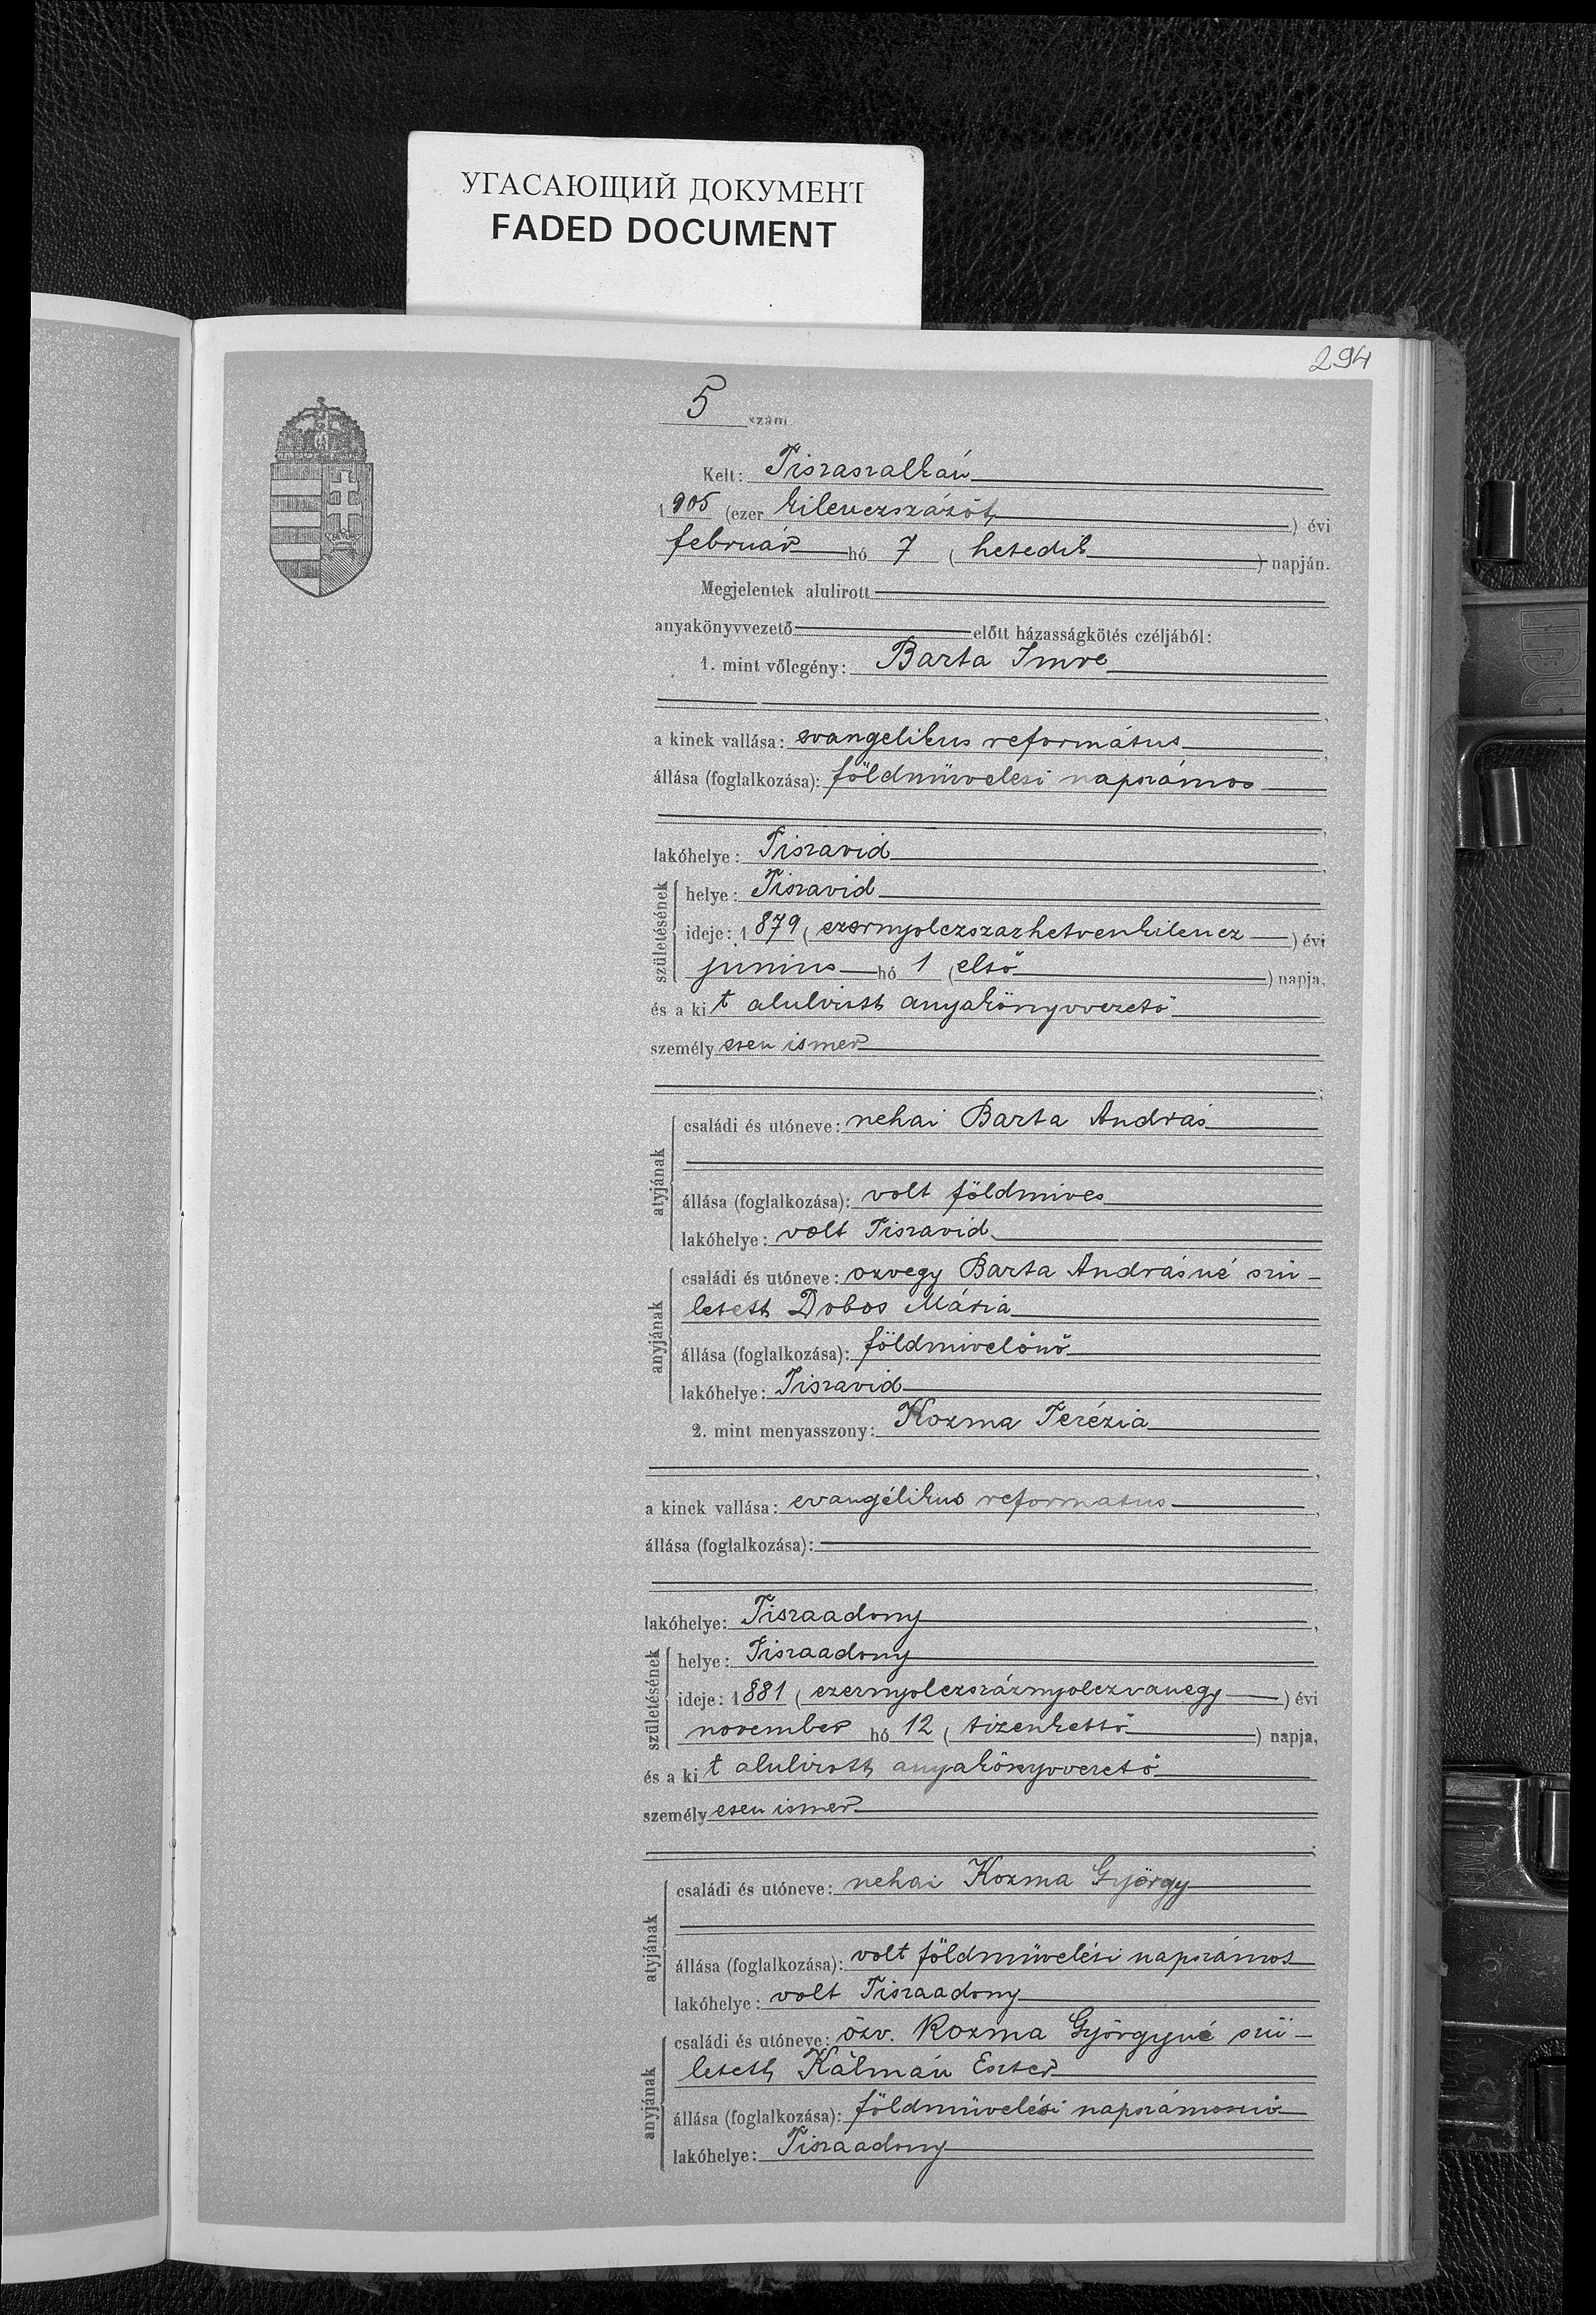 УГАСАЮЩИЙ ДОКУМЕНТ
FADED DOCUMENT
294
5 szám
Kelt: Tiszaszalkán
1905 (ezer kilenczszázöt) évi
február hó 7 (hetedik) napján.
Megjelentek alulirott
anyakönyvvezető előtt házasságkötés czéljából:
1. mint vőlegény: Barta Imre
a kinek vallása: evangelikus református,
állása (foglalkozása): földmüvelesi napszámos
lakóhelye: Tiszavid,
születésének
helye: Tiszavid
ideje: 1879 (ezernyolczszazhetvenkilencz) évi
junius hó 1 (első) napja,
és a kit alulirott anyakönyvvezető
személyesen ismer
;
atyjának
családi és utóneve: nehai Barta András
állása (foglalkozása): volt földmives
lakóhelye: volt Tiszavid
anyjának
családi és utóneve: özvegy Barta Andrásné szü-
letett Dobos Mária
állása (foglalkozása): földmivelőnő
lakóhelye: Tiszavid
2. mint menyasszony: Kozma Terézia
,
a kinek vallása: evangélikus reformatus,
állása (foglalkozása):
,
lakóhelye: Tiszaadony,
születésének
helye: Tiszaadony
ideje: 1881 (ezernyolczszáznyolczvanegy) évi
november hó 12 (tizenkettő) napja,
és a kit alulirott anyakönyvvezető
személyesen ismer
;
atyjának
családi és utóneve: nehai Kozma György
állása (foglalkozása): volt földmüvelési napszámos
lakóhelye: volt Tiszaadony
anyjának
családi és utóneve: özv. Kozma Györgyné szü-
letett Kálmán Eszter
állása (foglalkozása): földmüvelési napszámosnő
lakóhelye: Tiszaadony